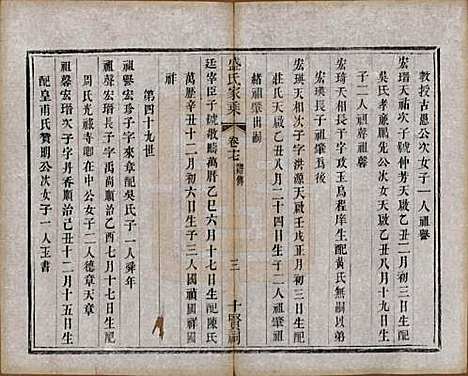 教授古愚公次女子一人祖譽
宏瑨天祐次子字仲芳天啟乙丑二月初三日生配
吳氏孝廉鵬先公次女天啟乙丑八月十九日生
子二人祖聲祖馨
宏琦天相長子字攻玉為程庠生配黃氏無嗣以弟
宏瑛長子祖肇為後
宏瑛天相次子字洪源天啟壬戌十月初三日生配
莊氏天啟甲子二月二十四日生子二人祖肇祖
緒祖肇出嗣
廷宰臣子號敬疇萬曆乙巳六月十七日生配陳氏
萬歷辛丑十二月初六日生子三人國禎國祥國
祚
盛氏家乘
卷七
三
十賢祠
第四十九世
祖譽宏珍子字來章配吳氏子一人舜年
祖聲宏瑨長子字禹尚順治乙酉七月十七日生配
周氏光祿寺卿在中公女子二人德章天章
祖馨宏瑨次子字丹香順治己丑十二月十五日生
配皇甫氏贊明公次女子一人玉書